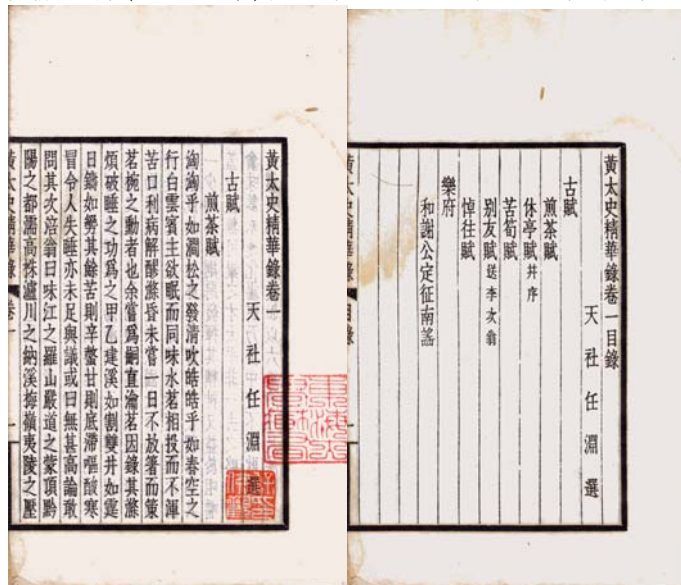 黃太史精華錄卷一目錄
天社任淵選
古賦
煎茶賦
休亭賦并序
苦筍賦
别友賦送李次翁
悼往賦
樂府
和謝公定征南謠
黃太史精華錄 目錄 一
黃太史精華錄卷一
天社任淵選
古賦
煎茶賦
洶洶乎如澗松之發清吹皓皓乎如春空之
行白雲賓主欲眠而同味水茗相投而不渾
苦口利病解醪滌昏未嘗一日不放箸而策
茗椀之勳者也余嘗爲嗣直瀹茗因錄其滌
煩破睡之功爲之甲乙建溪如割雙井如霆
日鑄如勞其餘苦則辛螫甘則底滯嘔酸寒
胃令人失睡亦未足與議或曰無甚高論敢
問其次涪翁曰味江之羅山嚴道之蒙頂黔
陽之都濡高株瀘川之納溪梅嶺夷陵之壓
黃太史精華錄 卷一 一